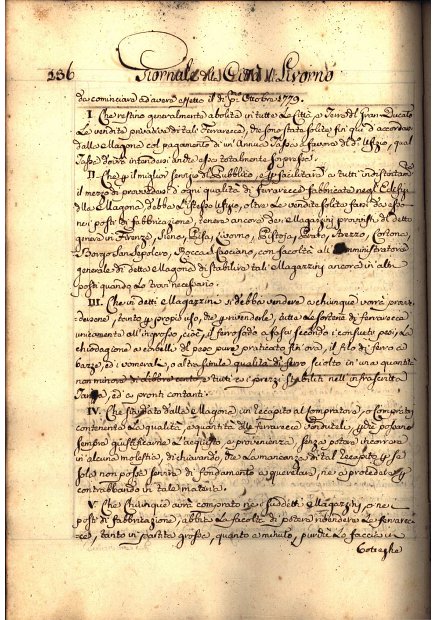 256 Giornale della Città di Livorno
da cominciare ad avere effetto il dì p.mo Ottobre 1779.
I. Che restino generalmente abolite in tutte le Città, e Terre del Gran Ducato
le vendite privative di tali Ferrarecce, che sono state solite fin qui d'accordarsi
dalla Magona col pagamento di un'Annua Tassa a favore di d.o Ufizio, qual
Tassa dovrà intendersi anche essa totalmente soppressa.
II. Che per il miglior servizio del Pubblico, e per facilitare a tutti indistintam.te
il mezzo di provvedersi d'ogni qualità di ferrarecce fabbricate negli Edifizi
della Magona, debba l'istesso Ufizio, oltre le vendite solite farsi da esso
nei posti di fabbricazione, tenere ancora dei Magazzini provvisti di detto
genere in Firenze, Siena, Pisa, Livorno, Pistoja, Prato, Arezzo, Cortona,
Borgo San Sepolcro, e Rocca San Casciano, con facoltà all'Amministratore
generale di detta Magona di stabilire tali Magazzini ancora in altri
posti quando lo creda necessario.
III. Che in detti Magazzini si debba vendere a chiunque vorrà provve-
dersene, tanto per proprio uso, che per rivendere, tutte le sorte di ferrarecce
unicamente all'ingrosso, cioè, il ferro sodo a fasci secondo i consueti pesi, la
chiodagione a corbelli del peso pure praticato fin'ora, il filo di ferro a
bazze, ed i vomerali, o altra simile qualità di ferro sciolto in una quantità
non minore di libbre cento, e tutti ai prezzi stabiliti nell'infrascritta
Tariffa, ed a pronti contanti.
IV. Che sia data dalla Magona un recapito al Compratore, o Compratori
contenente la qualità, e quantità delle ferrarecce vendutegli, perchè possano
sempre giustificarne l'acquisto, e provenienza, senza potere incorrere
in alcuna molestia, dichiarando, che la mancanza di tal recapito per se
sola non possa servire di fondamento a querelare, nè a procedere per
contrabbando in tale materia.
V. Che chiunque avrà comprato nei suddetti Magazzini, o nei
posti di fabbricazione, abbia la facoltà di potere rivendere le ferrarec-
ce, tanto in partite grosse, quanto a minuto, purchè le faccia in
botteghe